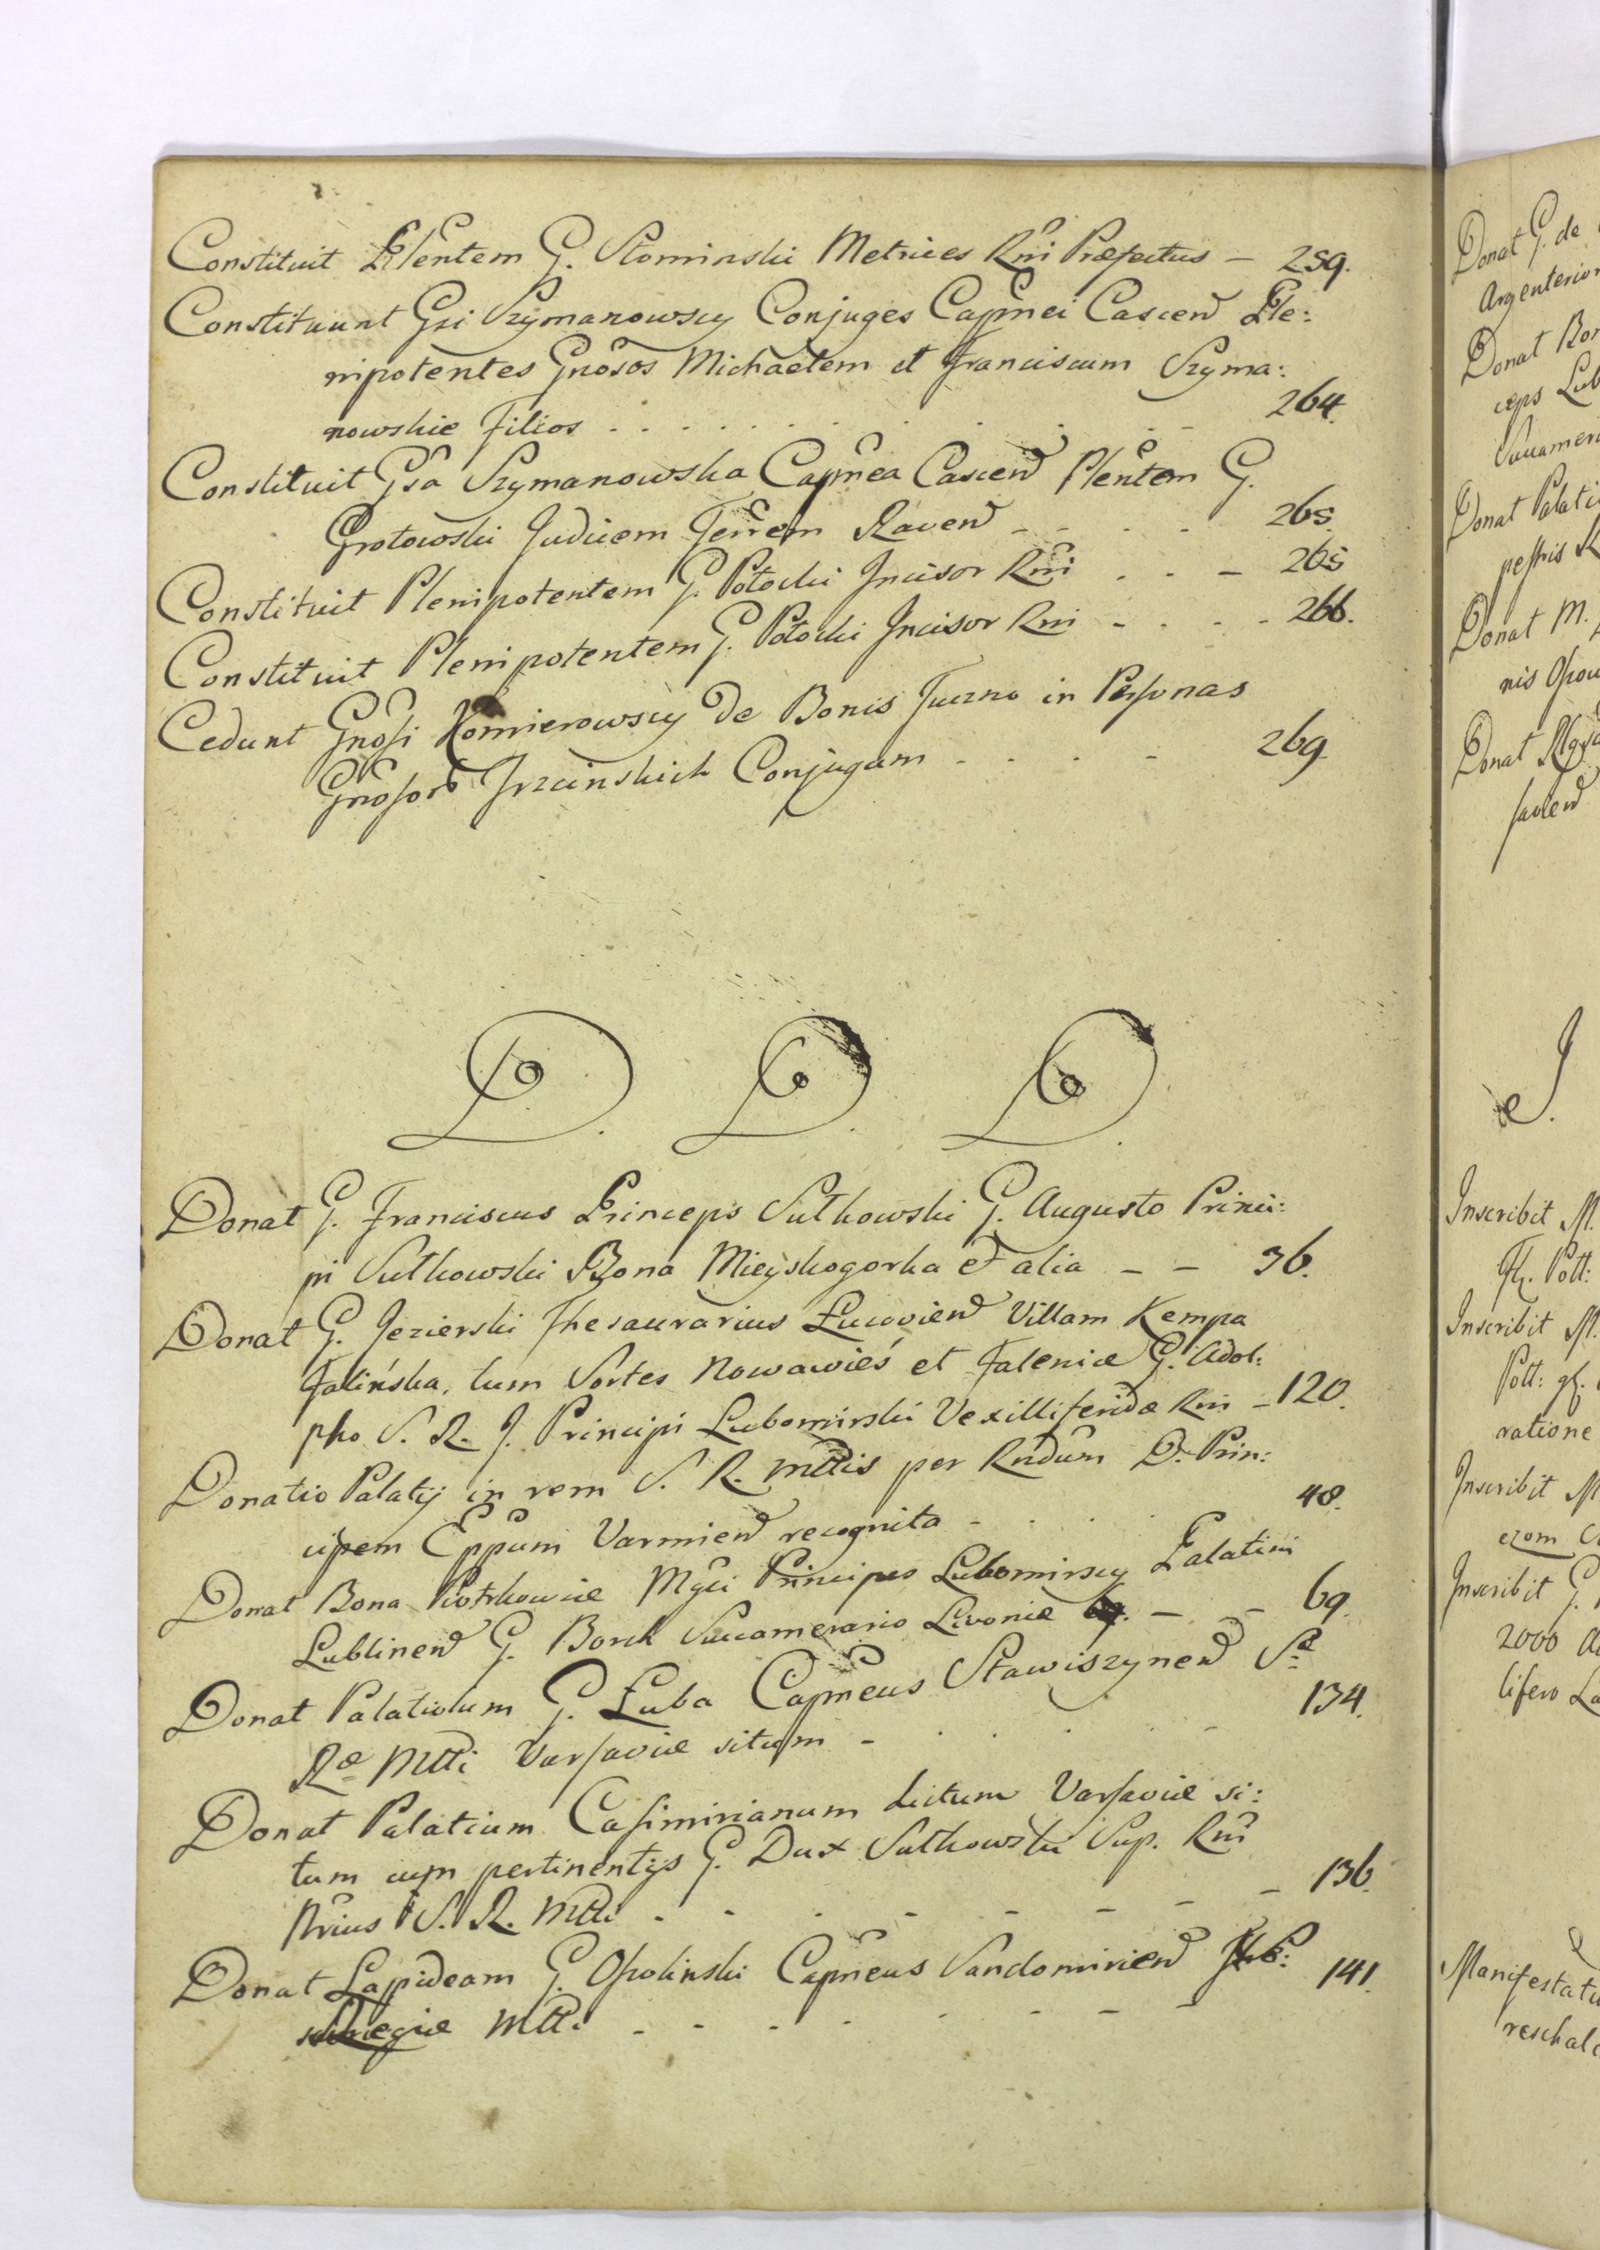 Constituit Plentem G. Slominski Metrices Rni Præfectus — 259.
Constituunt Gsi Szymanowscy Conjuges Capnei Cascen Ple:
nipotentes Gnosos Michaelem et Franciscum Szyma:
nowskie Filios . . . . . . . . . . 264.
Constituit Gsa Szymanowska Capnea Cascen Plentem G.
Grotowski Judicem Terrem Raven - - - - 265.
Constituit Plenipotentem G. Potocki Incisor Rni . . - 265
Constituit Plenipotentem G. Potocki Incisor Rni - . . - 266.
Cedunt Gnosi Komierowscy de Bonis Tuczno in Personas
Gnosor Trzcinskich Conjugum - . . - 269.
D. D. D.
Donat G. Franciscus Princeps Sułkowski G. Augusto Princi:
pi Sułkowski Bona Mieyskogorka et alia — — 36.
Donat G. Jezierski Thesaurarius Łucovien Villam Kempa
Falińska, tum Sortes Nowawieś et Falenicæ G. Adol:
pho S. R. J. Principi Lubomirski Vexilliferidæ Rni - 120.
Donatio Palatij in rem S. R. Mttis per Rndum D. Prin:
cipem Eppum Varmien recognita - . . . 48.
Donat Bona Piotrkowice Mgci Principes Lubomirscy Palatini
Lublinen G. Borch Succamerario Livoniæ — - 69.
Donat Palatiolum G. Łuba Capneus Stawiszynen Sæ
Ræ Mtti Varsaviæ situm - . . . - 134.
Donat Palatium Casimirianum dictum Varsaviæ si:
tum cum pertinentijs G. Dux Sułkowski Sup. Rni
Nrius S. R. Mtti - - . - - - - 136.
Donat Lapideam G. Ossolinski Capneus Sandomirien
Regiæ Mtti - - - . - - - - 141.
Donat G. de
Argenterior
Donat Bon
ceps Lub
Succamer
Donat Palati
pestris R
Donat M.
nis Opow
Donat
savien
J.
Inscribit M.
Fl. Poll:
Inscribit M.
Poll: gl.
ratione
Inscribit M
Inscribit G.
2000
lifero La
Manifestatu
reschal